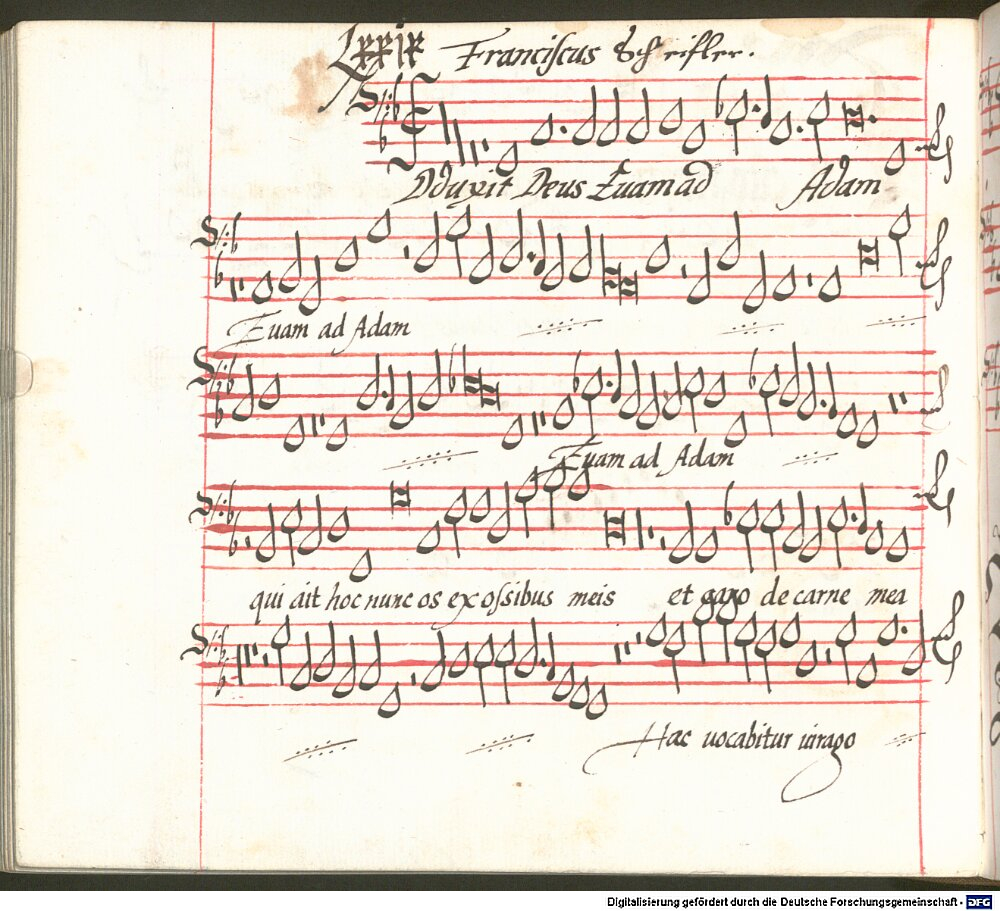 Lxxix Franciscus Scheifler.
Adduxit Deus Euam ad Adam
Euam ad Adam
Euam ad Adam
qui ait hoc nunc os ex ossibus meis et caro de carne mea
Hac uocabitur uirago
Digitalisierung gefördert durch die Deutsche Forschungsgemeinschaft - DFG